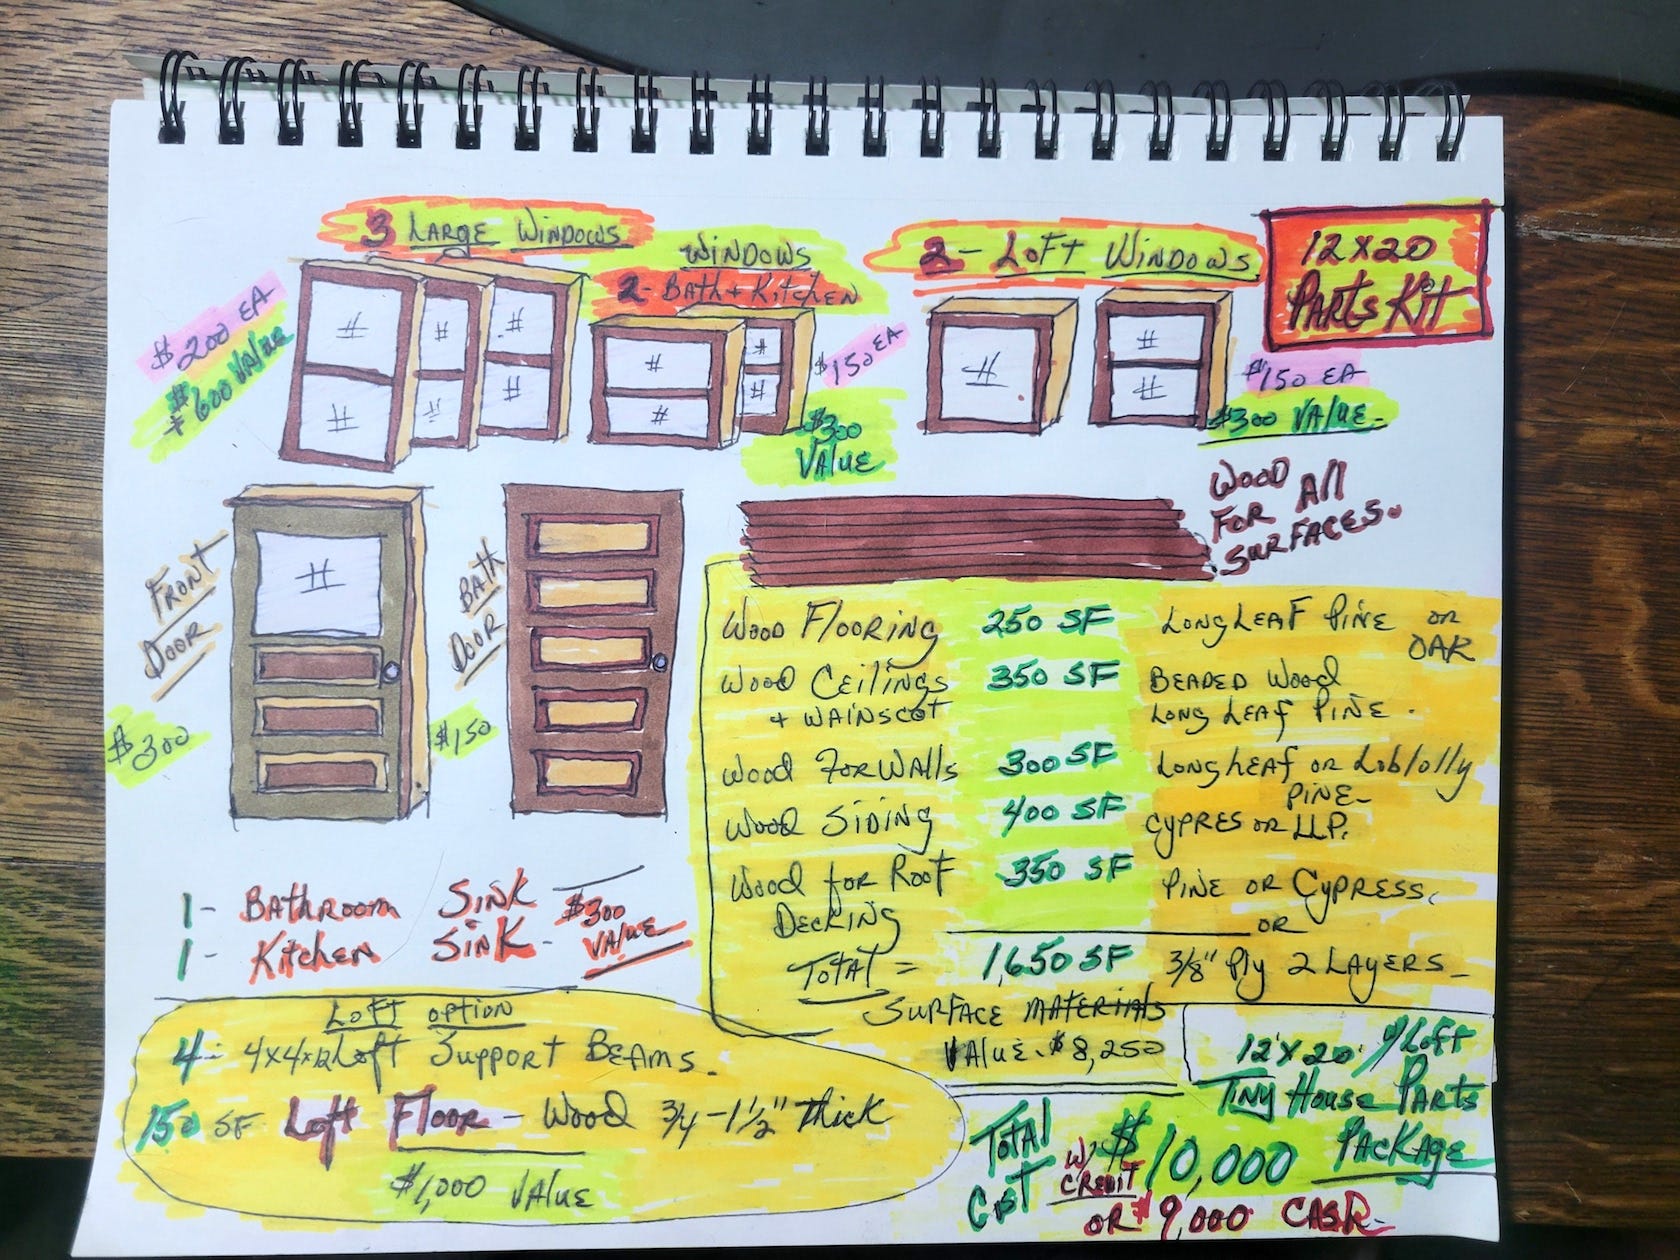 3 LARGE WINDOWS
WINDOWS
2- BATH + KITCHEN
2 - LOFT WINDOWS
12 X 20
PARTS KIT
$200 EA
$600 VALUE
$150 EA
$300
VALUE
$150 EA
$300 VALUE-
FRONT
DOOR
$300
BATH
DOOR
$150
WOOD
FOR All
SURFACES.
WOOD FLOORING 250 SF LONGLEAF PINE OR
OAK
WOOD CEILINGS 350 SF BEADED WOOD
+ WAINSCOT LONG LEAF PINE.
WOOD FOR WALLS 300 SF LONGLEAF OR Loblolly
PINE-
WOOD SIDING 400 SF CYPRES OR LLP.
WOOD for ROOF 350 SF PINE OR CYPRESS.
DECKING OR
TOTAL = 1,650 SF 3/8" Ply 2 LAYERS-
SURFACE MATERIALS
VALUE. $8,250
1- BATHROOM SINK $300
1- KITCHEN SINK- VALUE
LOFT OPTION
4- 4x4x12 Loft SUPPORT BEAMS.
150 SF Loft FLOOR - WOOD 3/4 - 1 1/2" thick
$1,000 VALUE
12'X20' w/LOFT
TINY HOUSE PARTS
PACKAGE
TOTAL
COST
W/ CREDIT $10,000
OR $9,000 CASH-